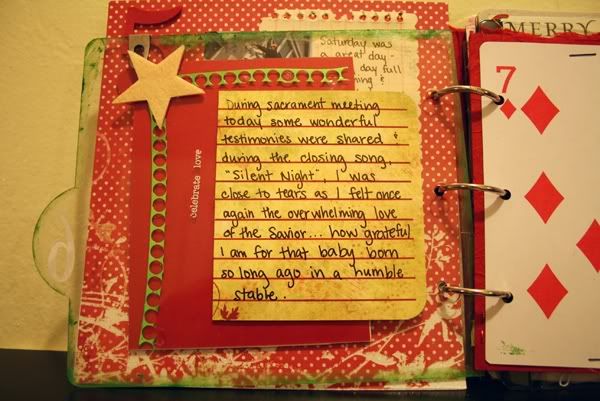 Saturday was
a great day -
day full
During sacrament meeting
today some wonderful
testimonies were shared &
during the closing song,
"Silent Night", I was
close to tears as I felt once
again the overwhelming love
of the Savior... how grateful
I am for that baby born
so long ago in a humble
stable.
celebrate love
MERRY
7